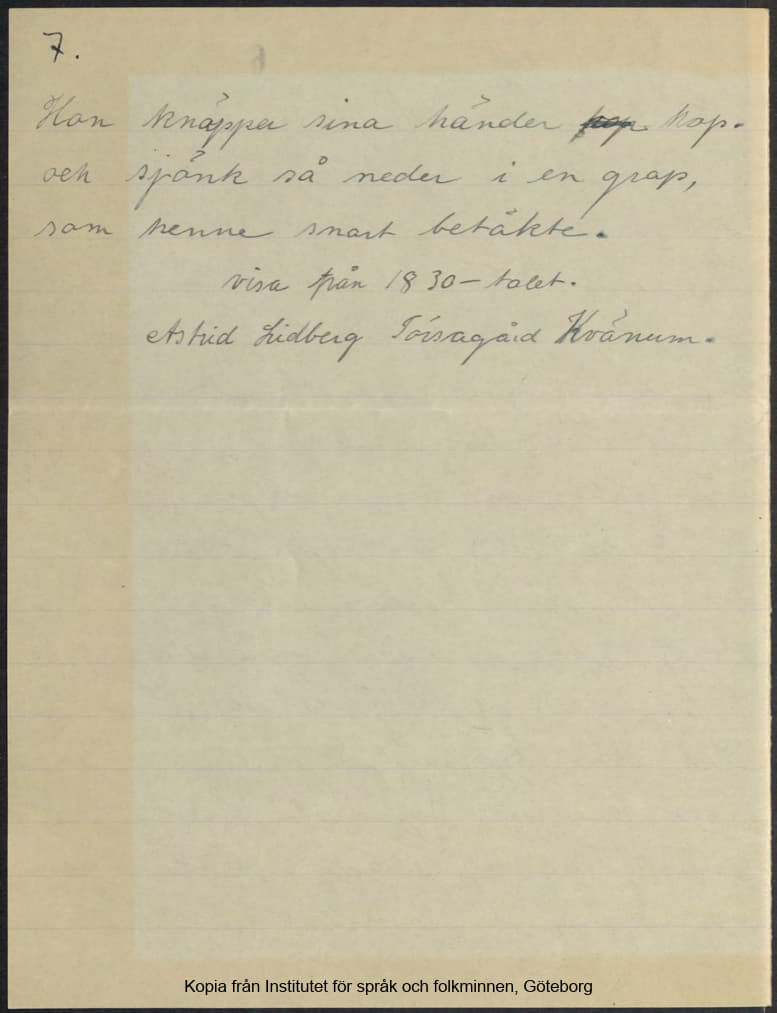 7.
Hon knäppa sina händer hop.
och sjönk så neder i en grap,
som henne snart betäkte.
visa från 1830-talet.
Astrid Lidberg Torsagård Kvänum.
Kopia från Institutet för språk och folkminnen, Göteborg